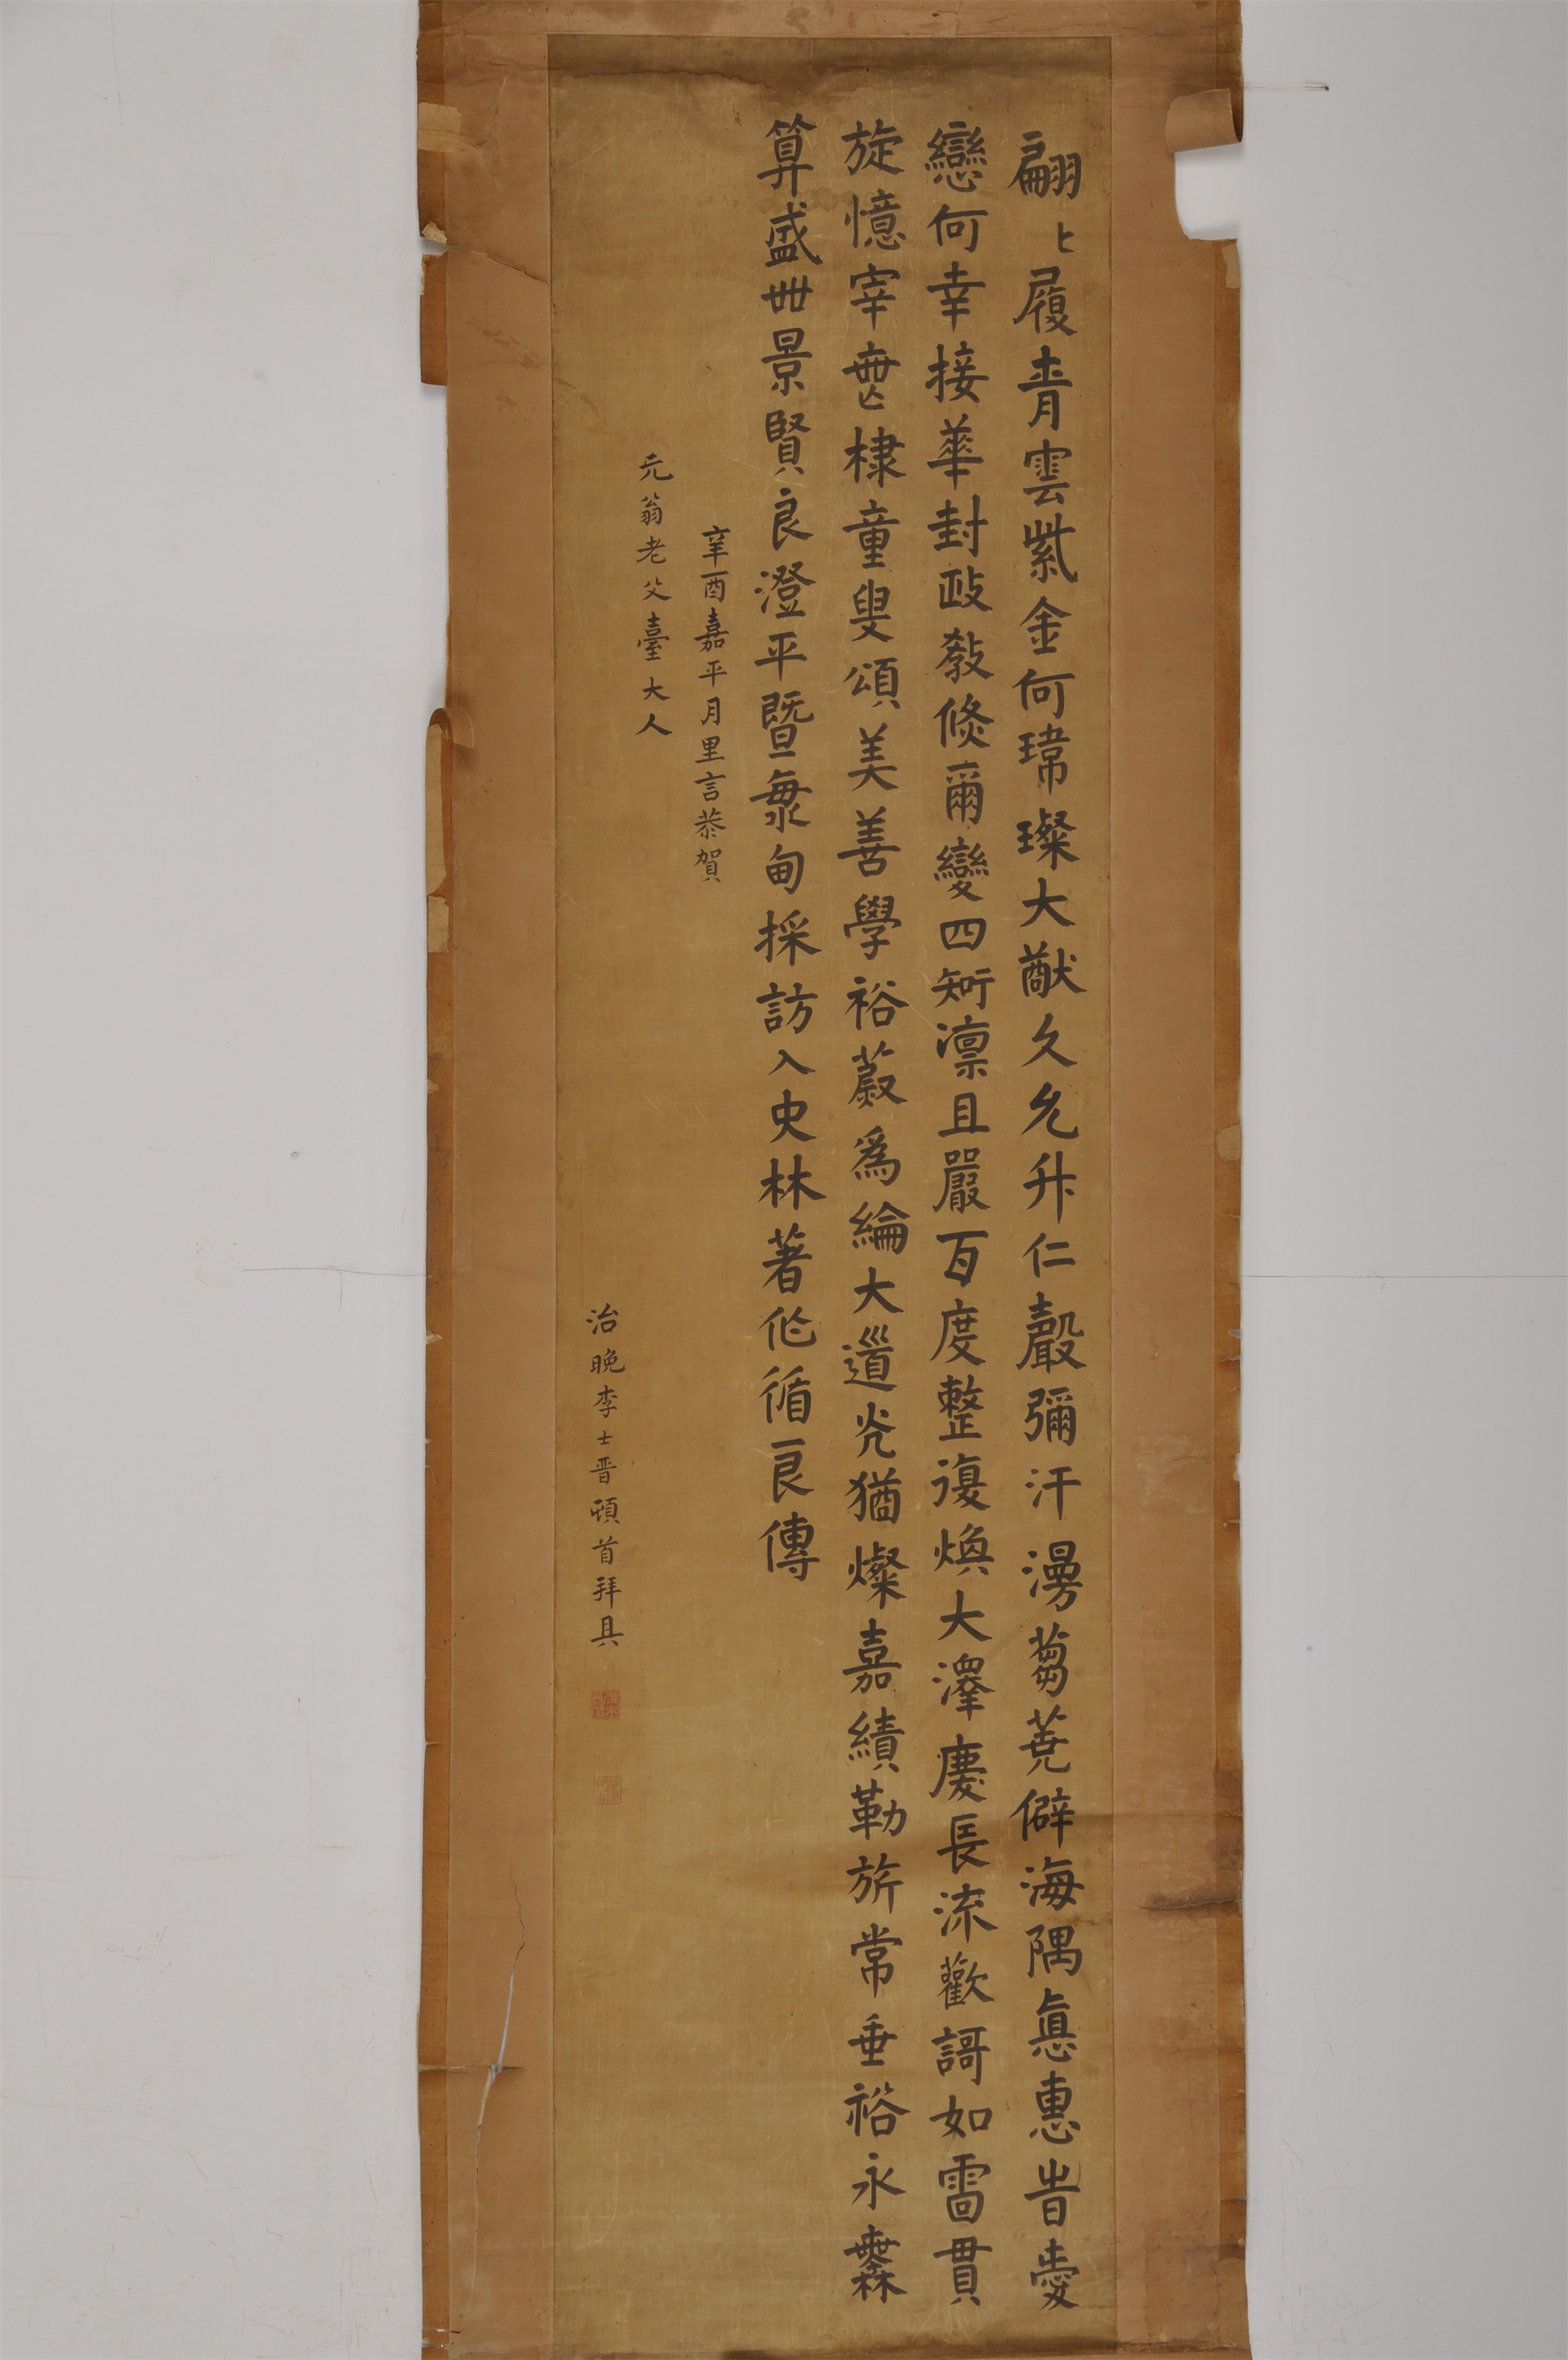 翩〻履青雲紫金何瑋璨大猷久允升仁聲彌汗漫芻蕘僻海隅惪惠旹愛
戀何幸接華封政教倐爾變四知凛且嚴百度整復煥大澤慶長流歡謌如雷貫
旋憶宰棠棣童叟頌美善學裕蔚為綸大道光猶燦嘉績勒旂常垂裕永無
算盛世景賢良澄平暨每甸採訪入史林著作循良傳
辛酉嘉平月里言恭賀
元翁老父臺大人
治晚李士晋頓首拜具